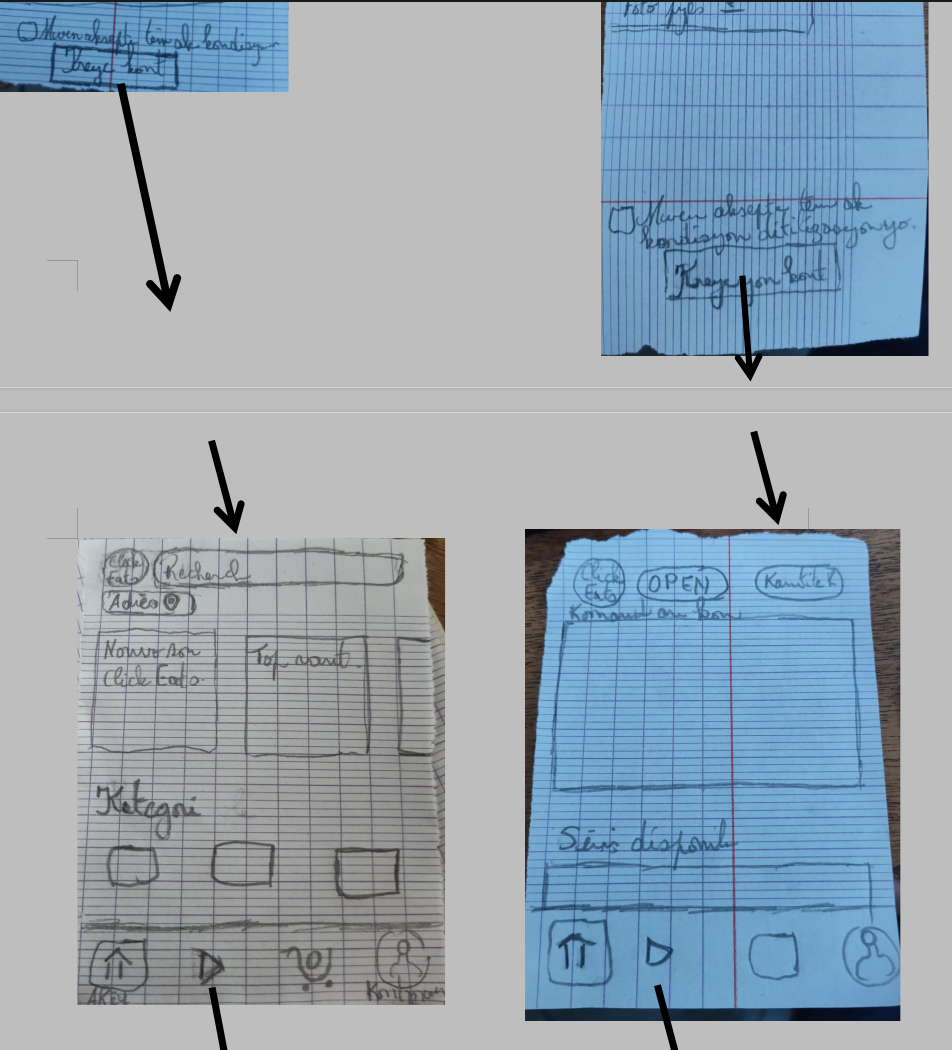 Mwen aksepte tèm ak kondisyon
Kreye kont
Foto
Mwen aksepte tèm ak
kondisyon ditilizasyon yo.
Kreye yon kont
Click
Eats
Rechend
Adrès
Nouvo son
Click Eats
Top vant
Kategori
AKEY
Click
Eats
OPEN
Komand an kou
Sèvis disponib